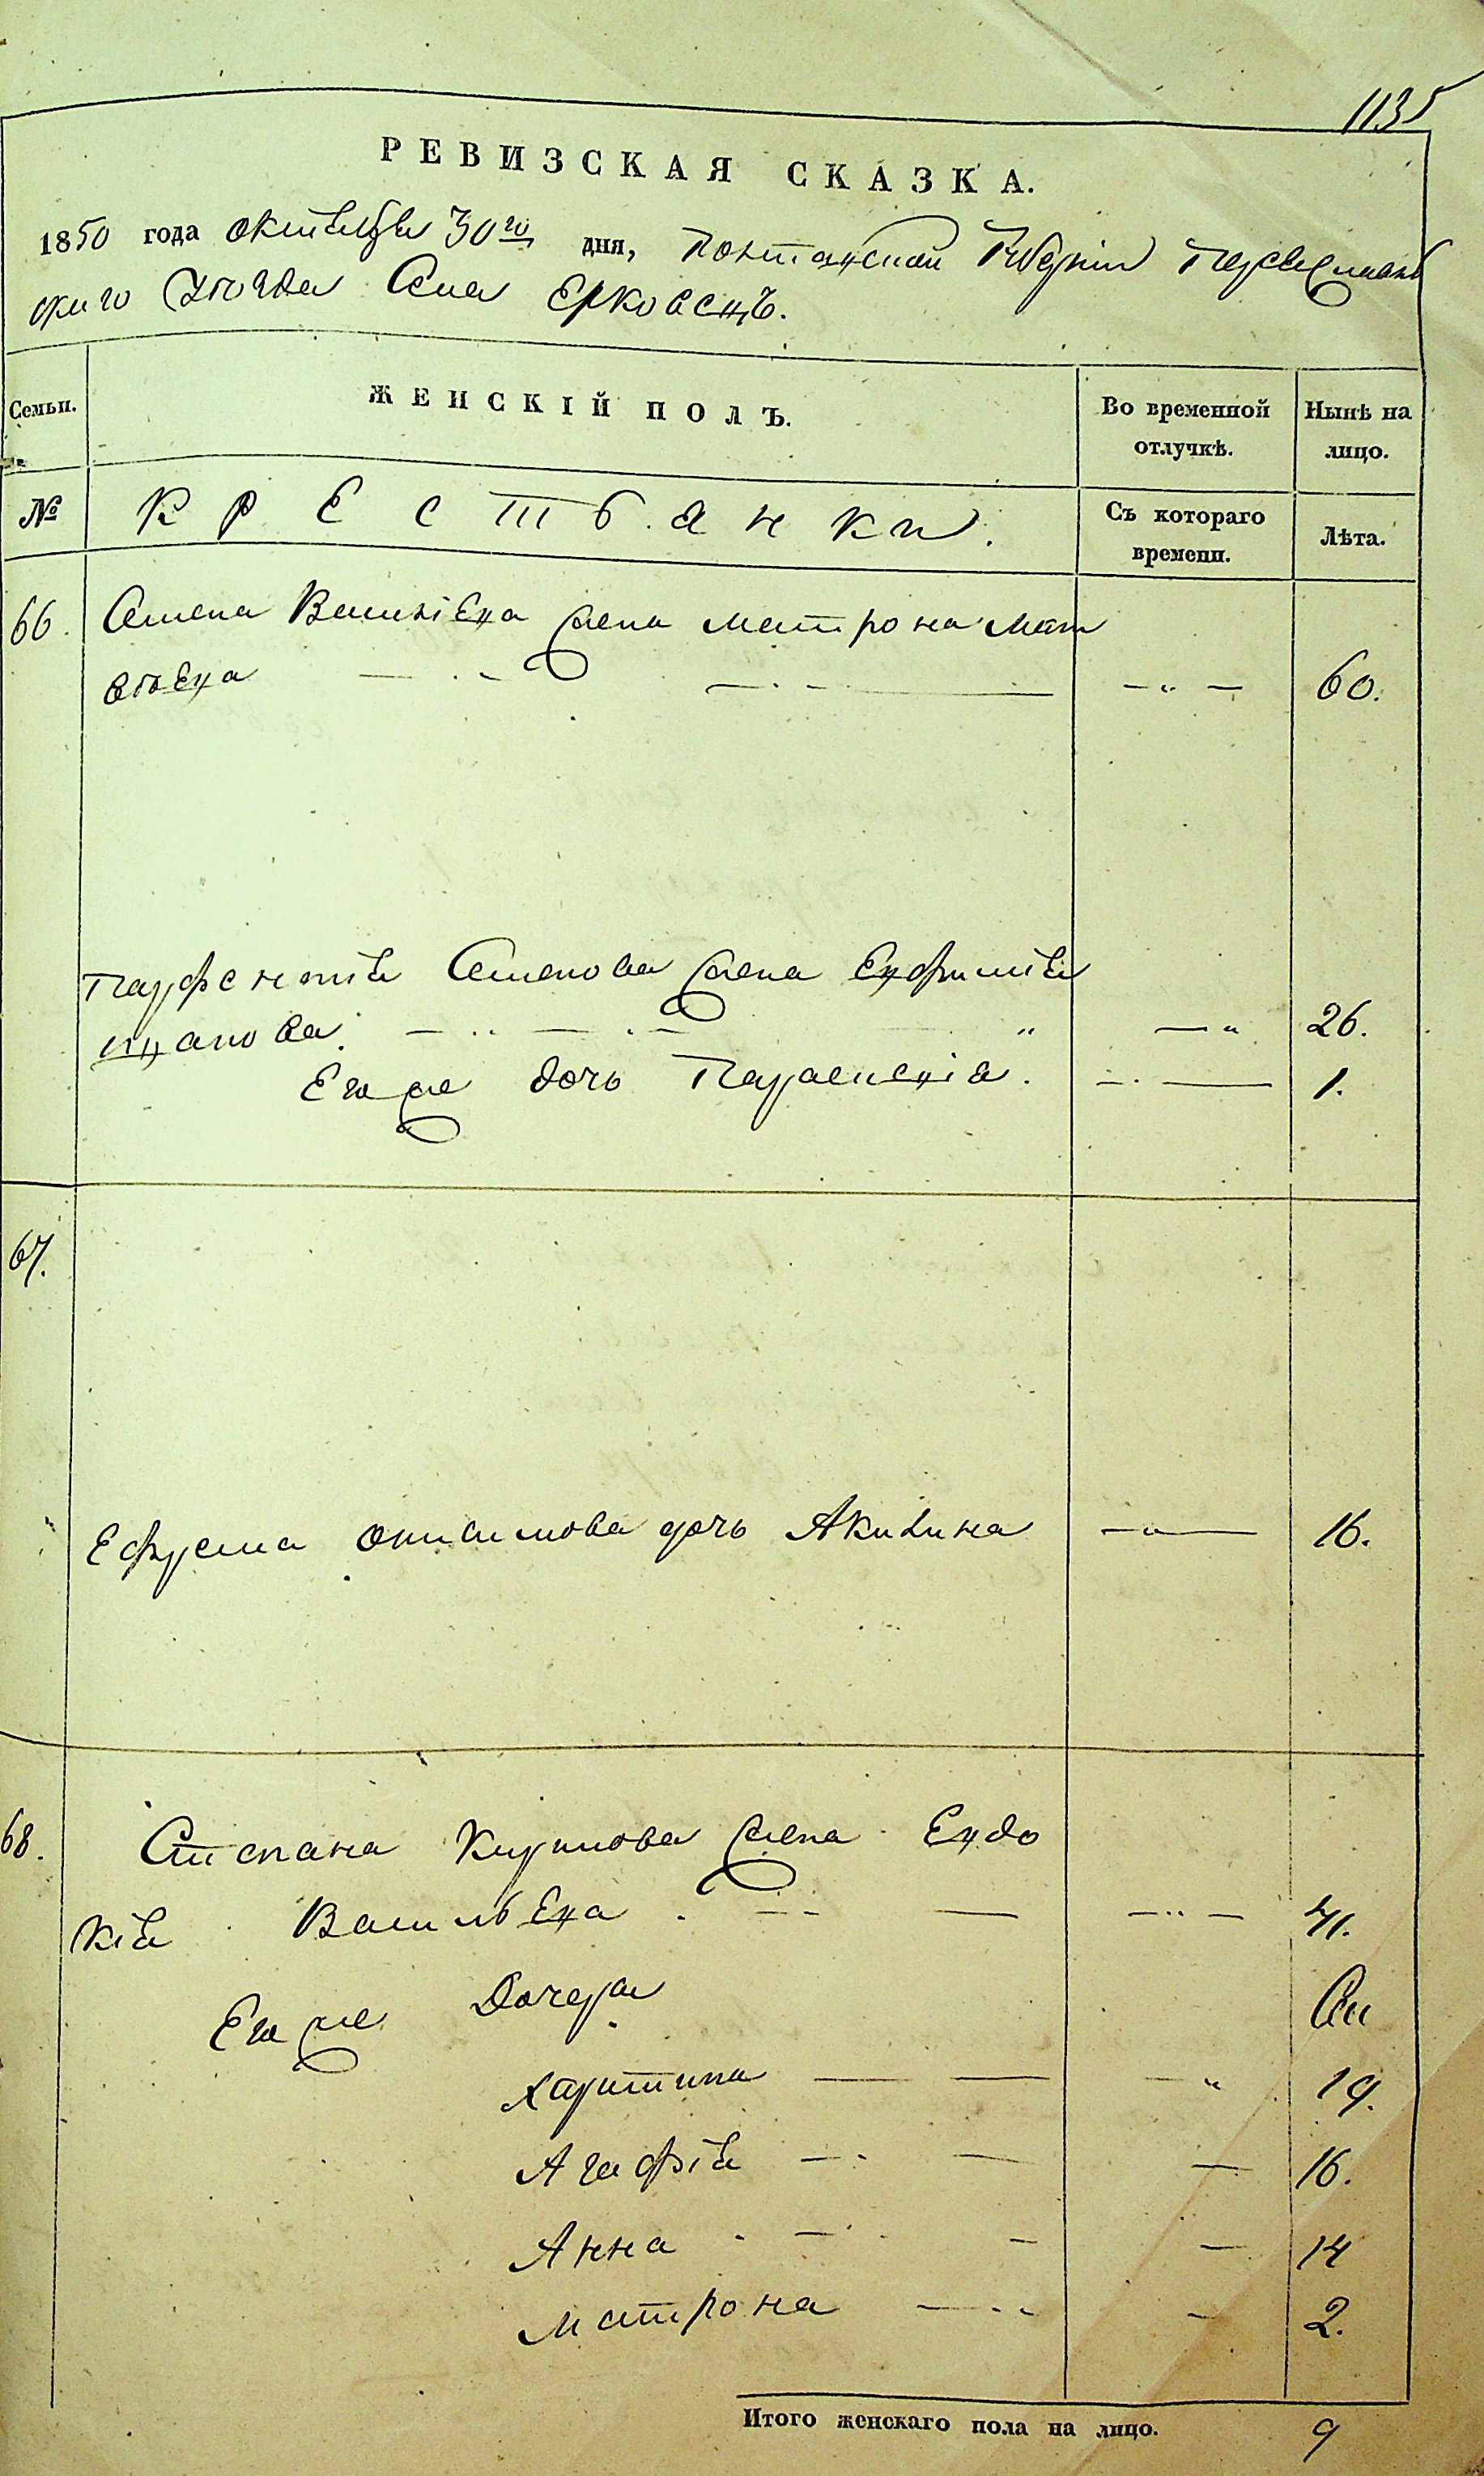 1135
РЕВИЗСКАЯ СКАЗКА.
1850 года октября 30го дня, Полтавской Губерніи Переяславь
скаго уѣзда Села Ерковецъ.
Семьи. ЖЕНСКІЙ ПОЛЪ. Во временной отлучкѣ. Нынѣ на лицо.
№ Крестьянки. Съ котораго времени. Лѣта.
66. Семена Васильева жена Матрона Мат
вѣева 60.
Парфентія Семенова жена Евфимія
Иванова. 26.
Его же дочь Параскевія. 1.
67.
Ефрема Онисимова дочь Акилина 16.
68. Степана Кирилова жена Евдо
кія Васильева. 41.
Его же Дочери
Харитина 19.
Агафія 16.
Анна 14
Матрона 2.
Итого женскаго пола на лицо. 9